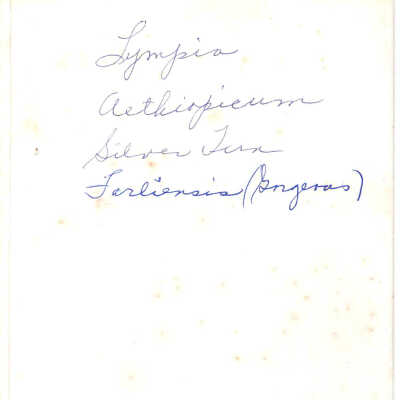 Lympia
Aethiopicum
Silver Fern
Farliensis (Gorgeous)